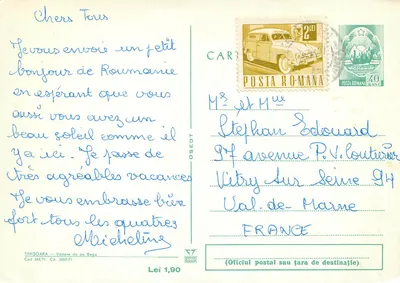 Chers Tous
Je vous envoie un petit
bonjour de Roumanie
en espérant que vous
aussi vous avez un
beau soleil comme il
y a ici. Je passe de
très agréables vacances
Je vous embrasse bien
fort tous les quatres
Micheline
TIMIȘOARA — Vedere de pe Bega
Lei 1,90
CART
2 LEI
POSTA ROMANA
POSTA ROMANA
40
Mr et Mme
Stephan Edouard
97 avenue P.V. Couturier
Vitry Sur Seine 94
Val-de-Marne
FRANCE
(Oficiul postal sau țara de destinație)